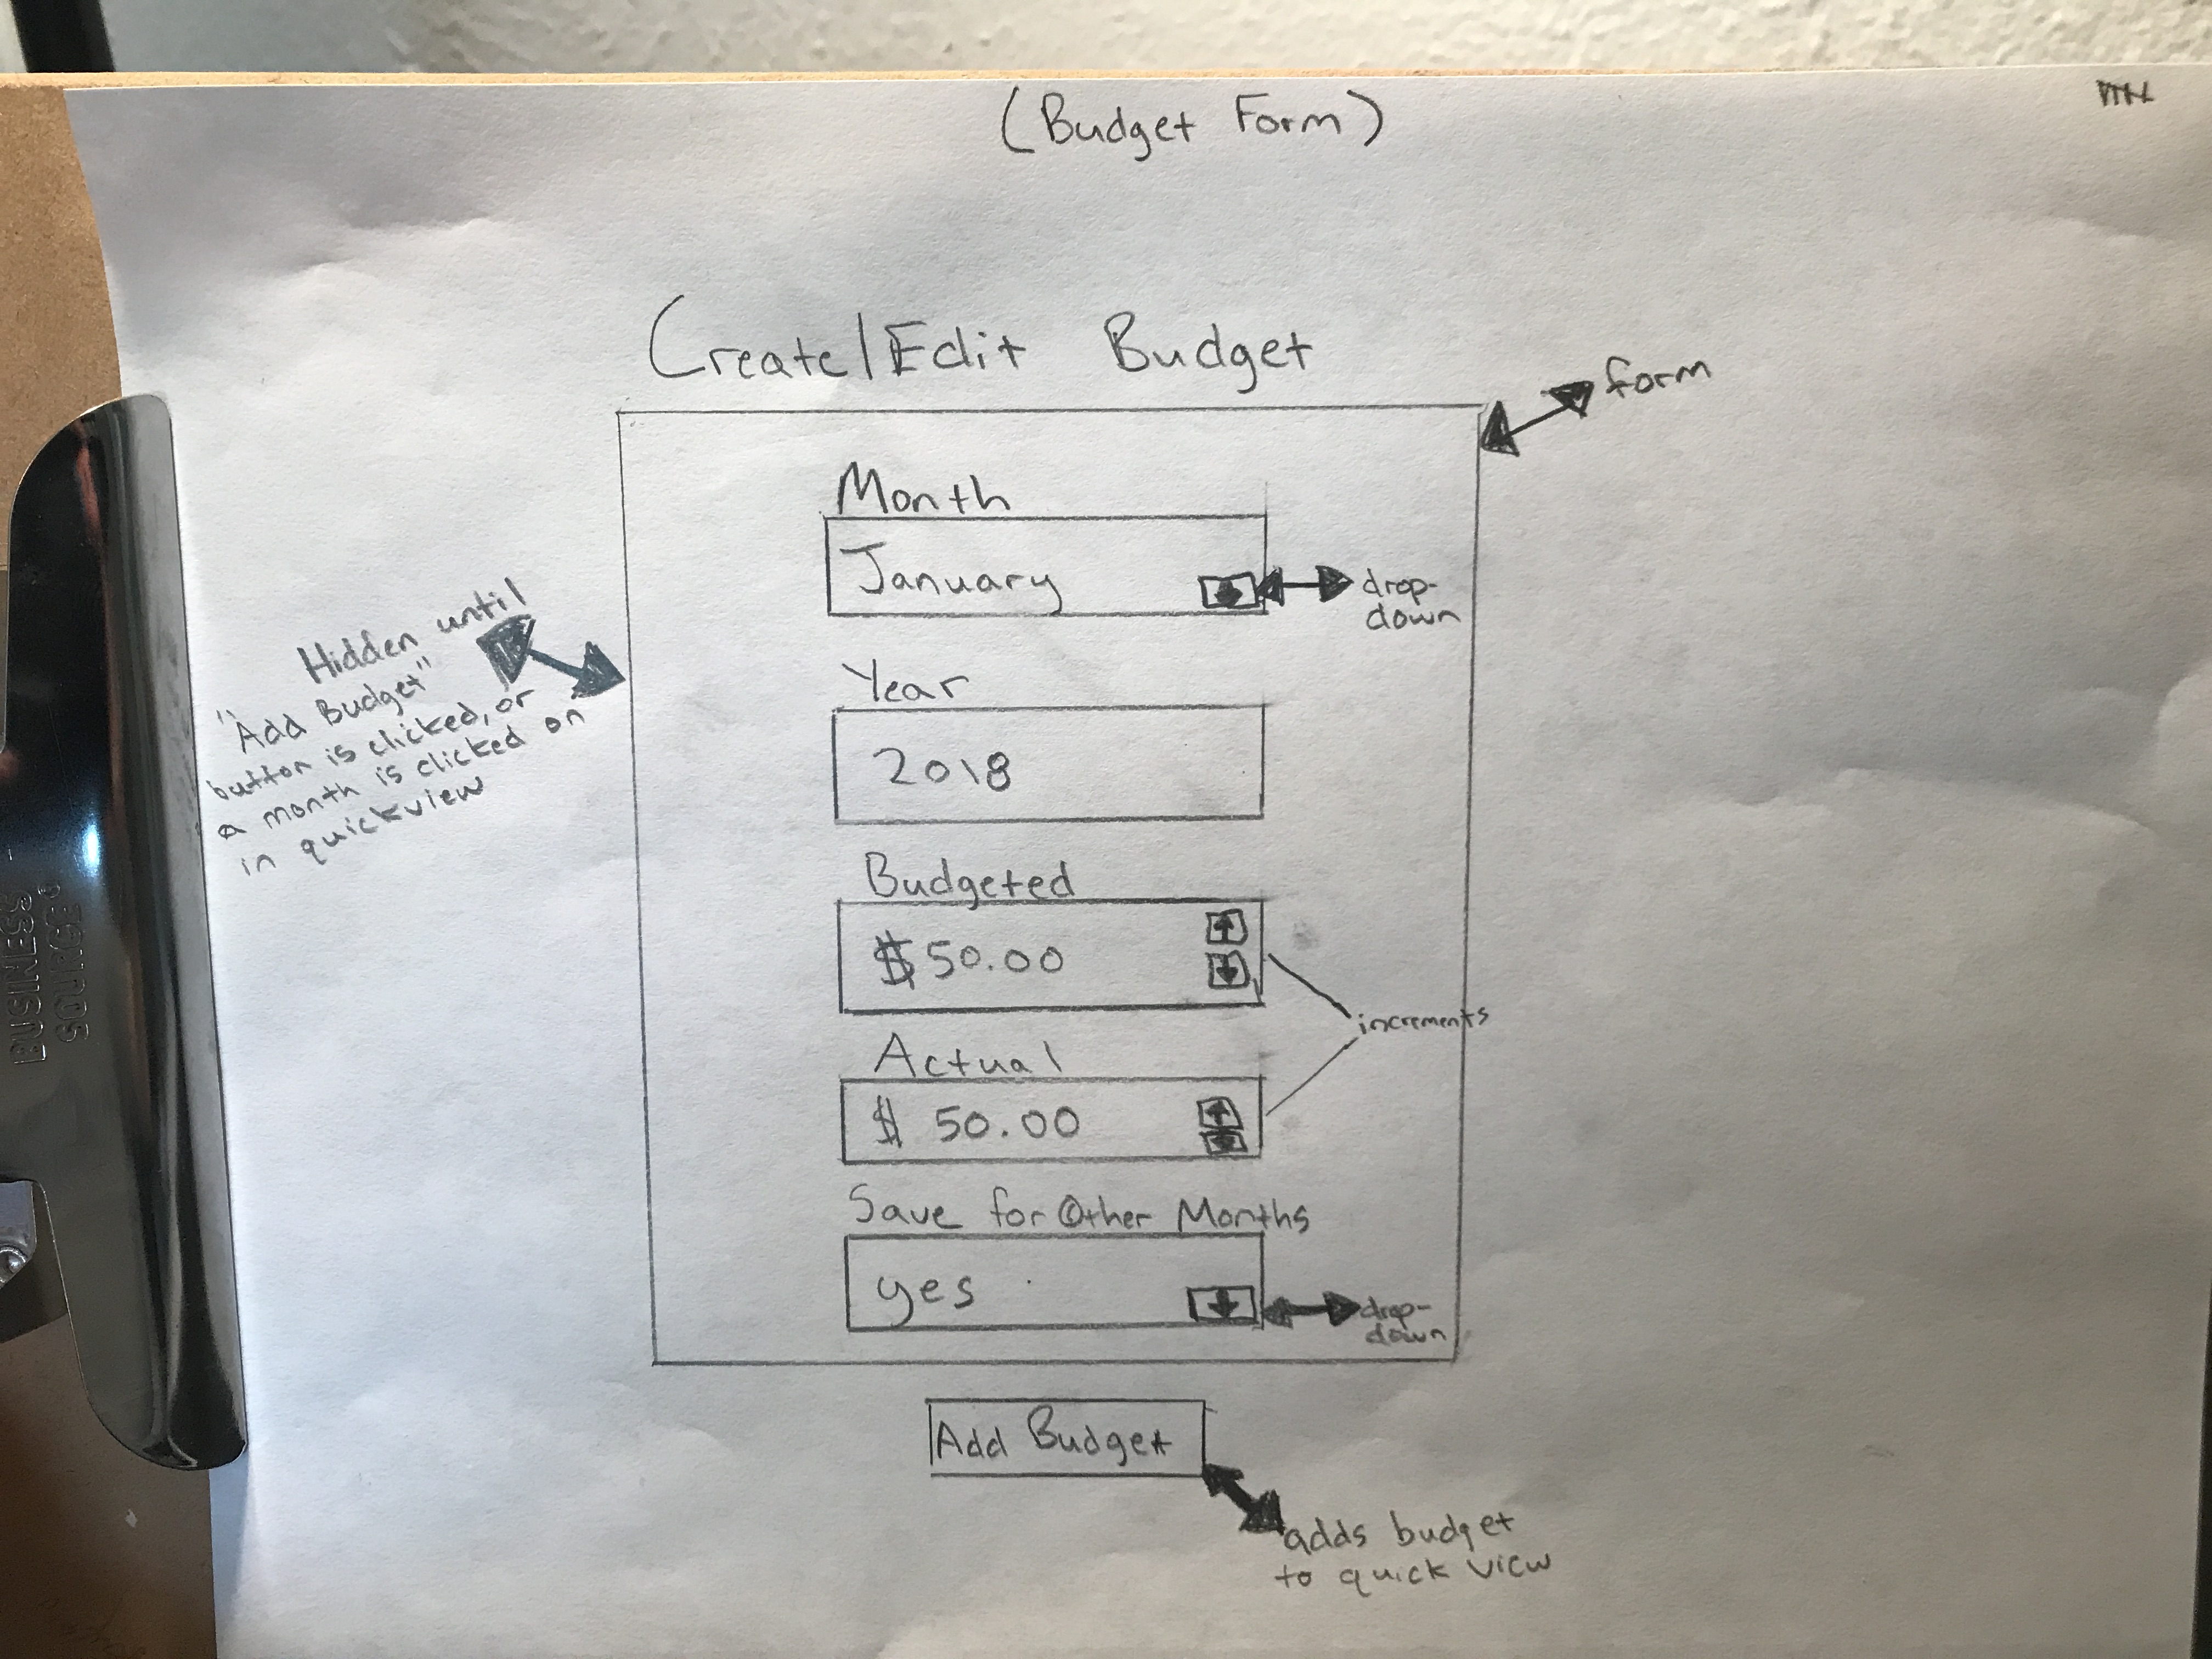 (Budget Form)
Create/Edit Budget
form
Month
January
drop-
down
Hidden until
"Add Budget"
button is clicked, or
a month is clicked on
in quickview
Year
2018
Budgeted
$50.00
increments
Actual
$ 50.00
Save for Other Months
yes
drop-
down
Add Budget
adds budget
to quick view
BUSINESS
SOURCE